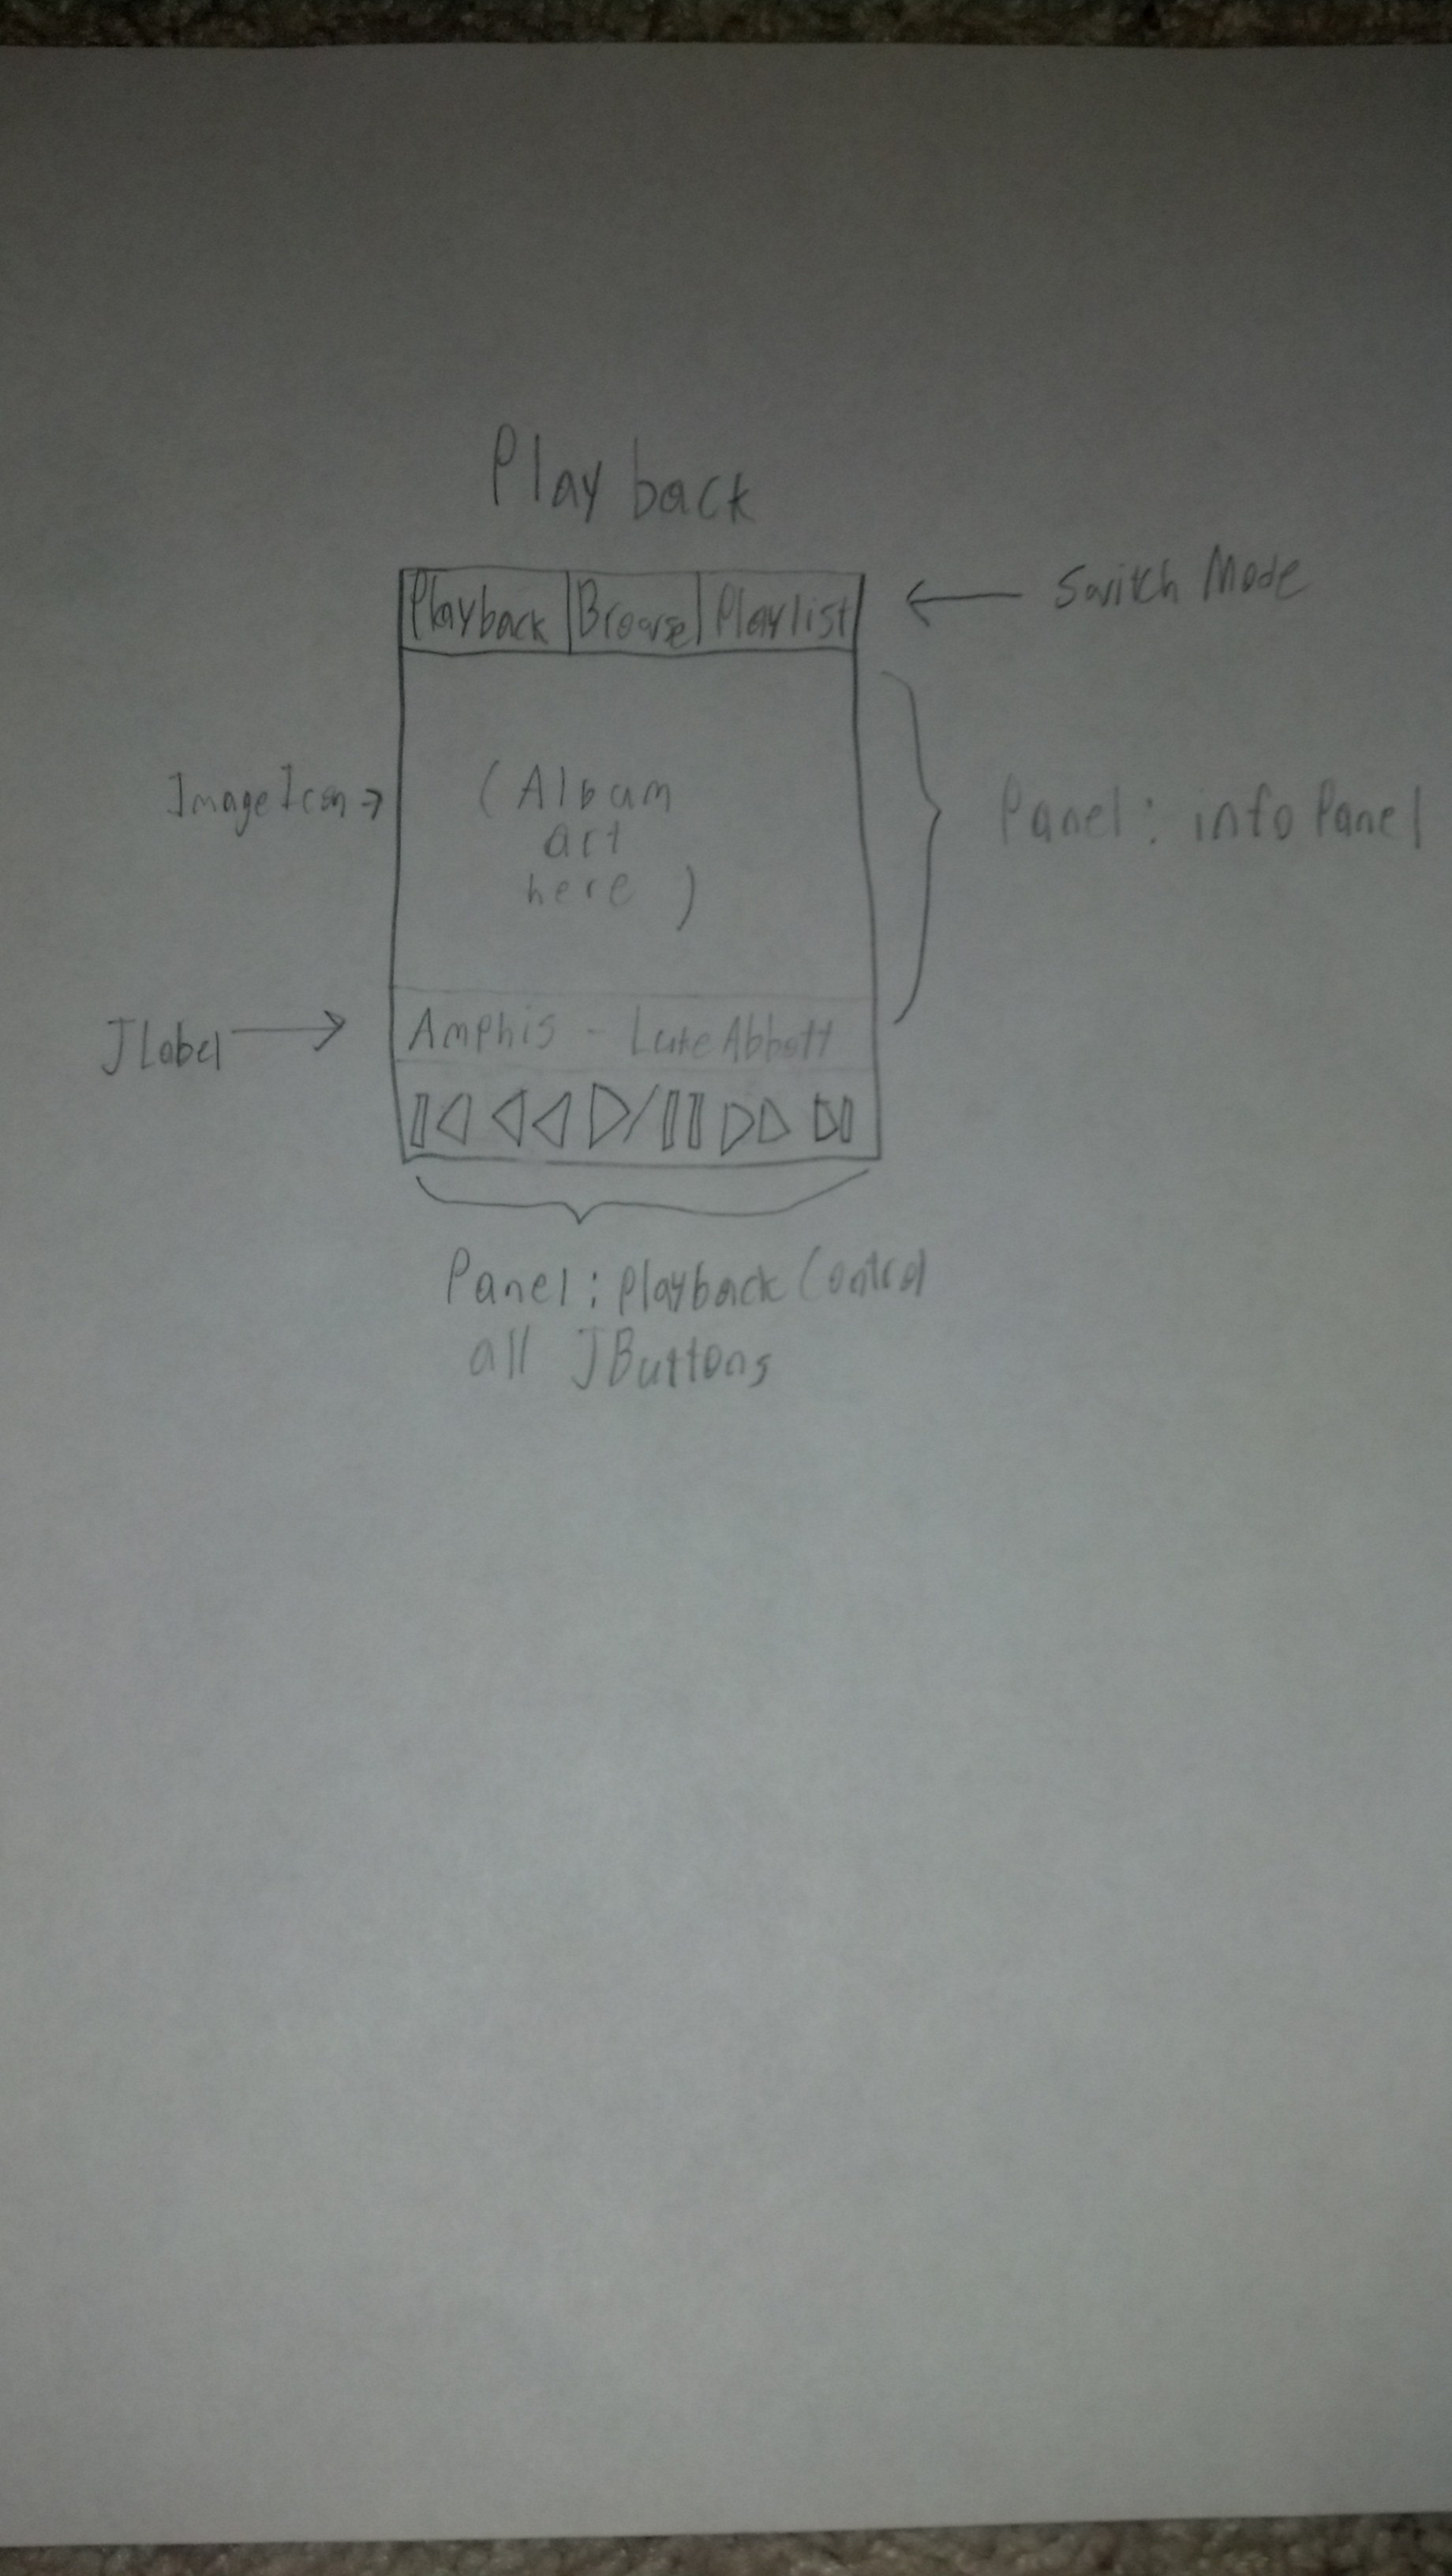 Playback
Playback Browse Playlist
Switch Mode
ImageIcon
(Album
art
here)
Panel: infoPanel
JLabel
Amphis - Luke Abbott
Panel: playbackControl
all JButtons